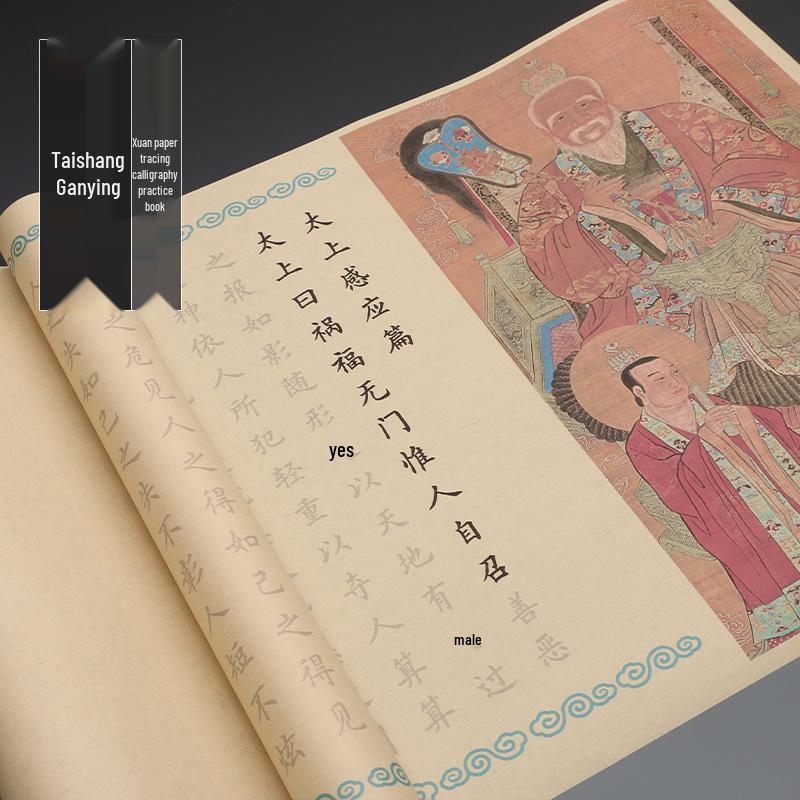 Taishang
Ganying
Xuan paper
tracing
calligraphy
practice
book
太上感应篇
太上曰祸福无门惟人自召善恶
之报如影随形
yes
以天地有
male
过
神依人所犯轻重以夺人算算
之危见人之得如己之得见
人之失如己之失不彰人短不炫